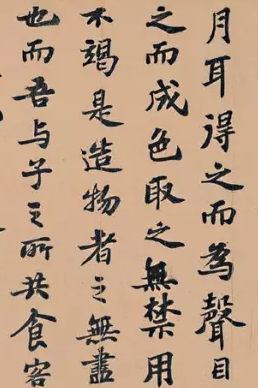 月耳得之而為聲目
之而成色取之無禁用
不竭是造物者之無盡
也而吾与子之所共食客